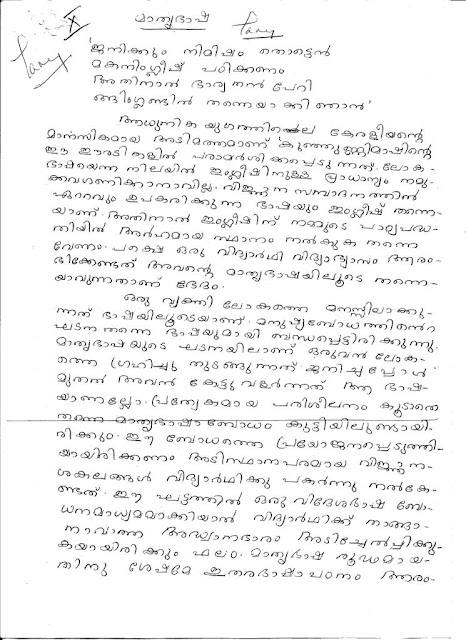 മാതൃഭാഷ
'ജനിക്കും നിമിഷം തൊട്ടെൻ
മകനിംഗ്ലീഷ് പഠിക്കണം
അതിനാൽ ഭാര്യതൻ പേറി
ങ്ങിംഗ്ലണ്ടിൽ തന്നെയാക്കി ഞാൻ'
ആധുനിക യുഗത്തിലെ കേരളീയന്റെ
മാനസികമായ അടിമത്തമാണ് 'കുഞ്ഞുണ്ണിമാഷിന്റെ
ഈ ഈരടികളിൽ പരാമർശിക്കപ്പെടുന്നത്. ലോക-
ഭാഷയെന്ന നിലയിൽ ഇംഗ്ലീഷിനുള്ള പ്രാധാന്യം നമു-
ക്കവഗണിക്കാനാവില്ല. വിജ്ഞാന സമ്പാദനത്തിന്
ഏറ്റവും ഉപകരിക്കുന്ന ഭാഷയും ഇംഗ്ലീഷ് തന്നെ-
യാണ്. അതിനാൽ ഇംഗ്ലീഷിന് നമ്മുടെ പാഠ്യപദ്ധ-
തിയിൽ അർഹമായ സ്ഥാനം നൽകുക തന്നെ
വേണം. പക്ഷെ ഒരു വിദ്യാർഥി വിദ്യാഭ്യാസം ആരം-
ഭിക്കേണ്ടത് അവന്റെ മാതൃഭാഷയിലൂടെ തന്നെ-
യാവുന്നതാണ് ഭേദം.
ഒരു വ്യക്തി ലോകത്തെ മനസ്സിലാക്കു-
ന്നത് ഭാഷയിലൂടെയാണ്. മനുഷ്യബോധത്തിന്റെ
ഘടന തന്നെ ഭാഷയുമായി ബന്ധപ്പെട്ടിരിക്കുന്നു.
മാതൃഭാഷയുടെ ഘടനയിലാണ് ഒരുവൻ ലോക-
ത്തെ ഗ്രഹിച്ചു തുടങ്ങുന്നത്. ജനിച്ചപ്പോൾ
മുതൽ അവൻ കേട്ടുവളർന്നത് ആ ഭാഷ-
യാണല്ലോ. പ്രത്യേകമായ പരിശീലനം കൂടാതെ
തന്നെ മാതൃഭാഷാബോധം കുട്ടിയിലുണ്ടായി-
രിക്കും. ഈ ബോധത്തെ പ്രയോജനപ്പെടുത്തി-
യായിരിക്കണം അടിസ്ഥാനപരമായ വിജ്ഞാന-
ശകലങ്ങൾ വിദ്യാർഥിക്ക് പകർന്നു നൽകേ-
ണ്ടത്. ഈ ഘട്ടത്തിൽ ഒരു വിദേശഭാഷ ബോ-
ധനമാധ്യമമാക്കിയാൽ വിദ്യാർഥിക്ക് താങ്ങാ-
നാവാത്ത അദ്ധ്വാനഭാരം അടിച്ചേൽപ്പിക്കു-
കയായിരിക്കും ഫലം. മാതൃഭാഷ രൂഢമായ-
തിനു ശേഷമേ ഇതരഭാഷാപഠനം ആരം-